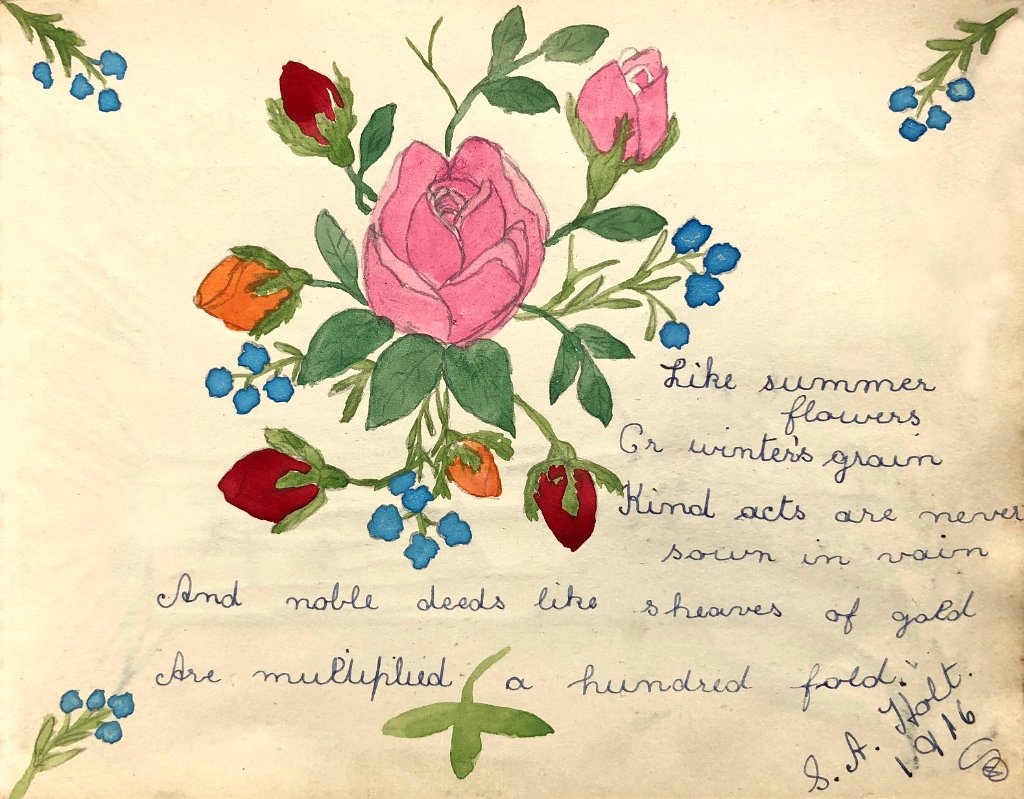 Like summer
flowers
Or winter's grain
Kind acts are never
sown in vain
And noble deeds like sheaves of gold
Are multiplied a hundred fold."
S. A. Holt.
1916